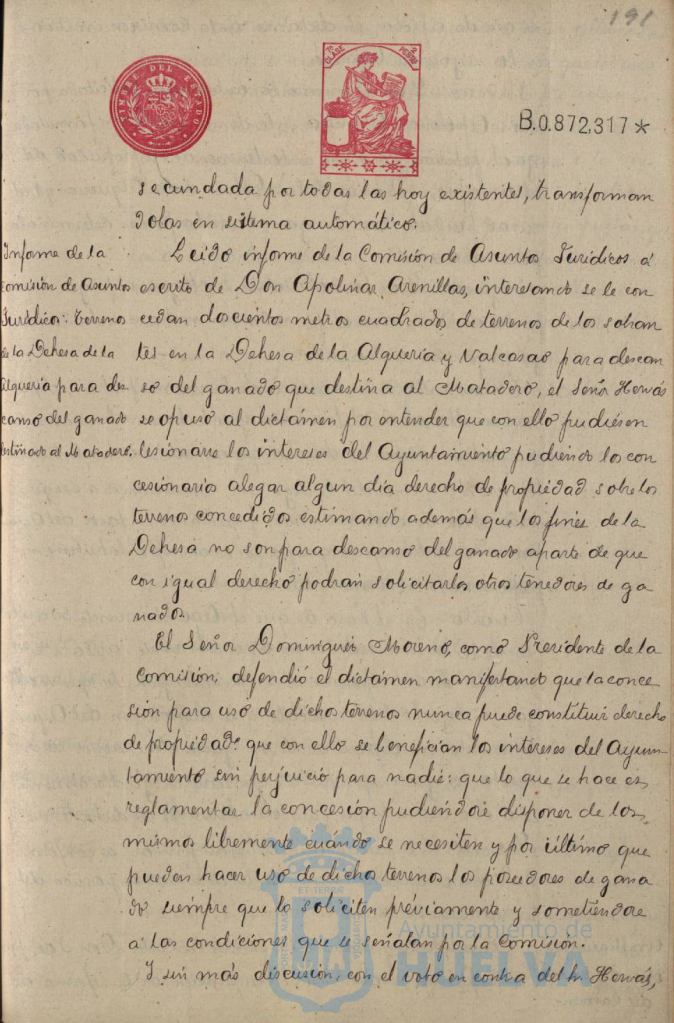 191
TIMBRE DEL ESTADO
7ª CLASE
B.0.872,317 *
secundada por todas las hoy existentes, transforman
dolas en sistema automático.
Informe de la
comisión de Asuntos
Jurídicos: terrenos
de la Dehesa de la
Alquería para des
canso del ganado
destinado al Matadero.
Leido informe de la Comisión de Asuntos Jurídicos á
escrito de Don Apolinar Arenillas, interesando se le con
cedan doscientos metros cuadrados de terrenos de los sobran
tes en la Dehesa de la Alquería y Valcasao para descan
so del ganado que destina al Matadero, el Señor Hervás
se opuso al dictámen por entender que con ello pudiesen
lesionarse los intereses del Ayuntamiento pudiendo los con
cesionarios alegar algun dia derecho de propiedad sobre los
terrenos concedidos estimando además que los fines de la
Dehesa no son para descanso del ganado aparte de que
con igual derecho podrán solicitarlos otros tenedores de ga
nados.
El Señor Dominguez Moreno, como Presidente de la
Comisión, defendió el dictámen manifestando que la conce
sión para uso de dichos terrenos nunca puede constituir derecho
de propiedad: que con ello se benefician los intereses del Ayun
tamiento sin perjuicio para nadie: que lo que se hace es
reglamentar la concesión pudiéndose disponer de los
mismos libremente cuando se necesiten y por último que
pueden hacer uso de dichos terrenos los poseedores de gana
do siempre que lo soliciten préviamente y sometiendose
á las condiciones que se señalan por la Comisión.
Y sin más discusión, con el voto en contra del Sr. Hervás,
Ayuntamiento de
HUELVA